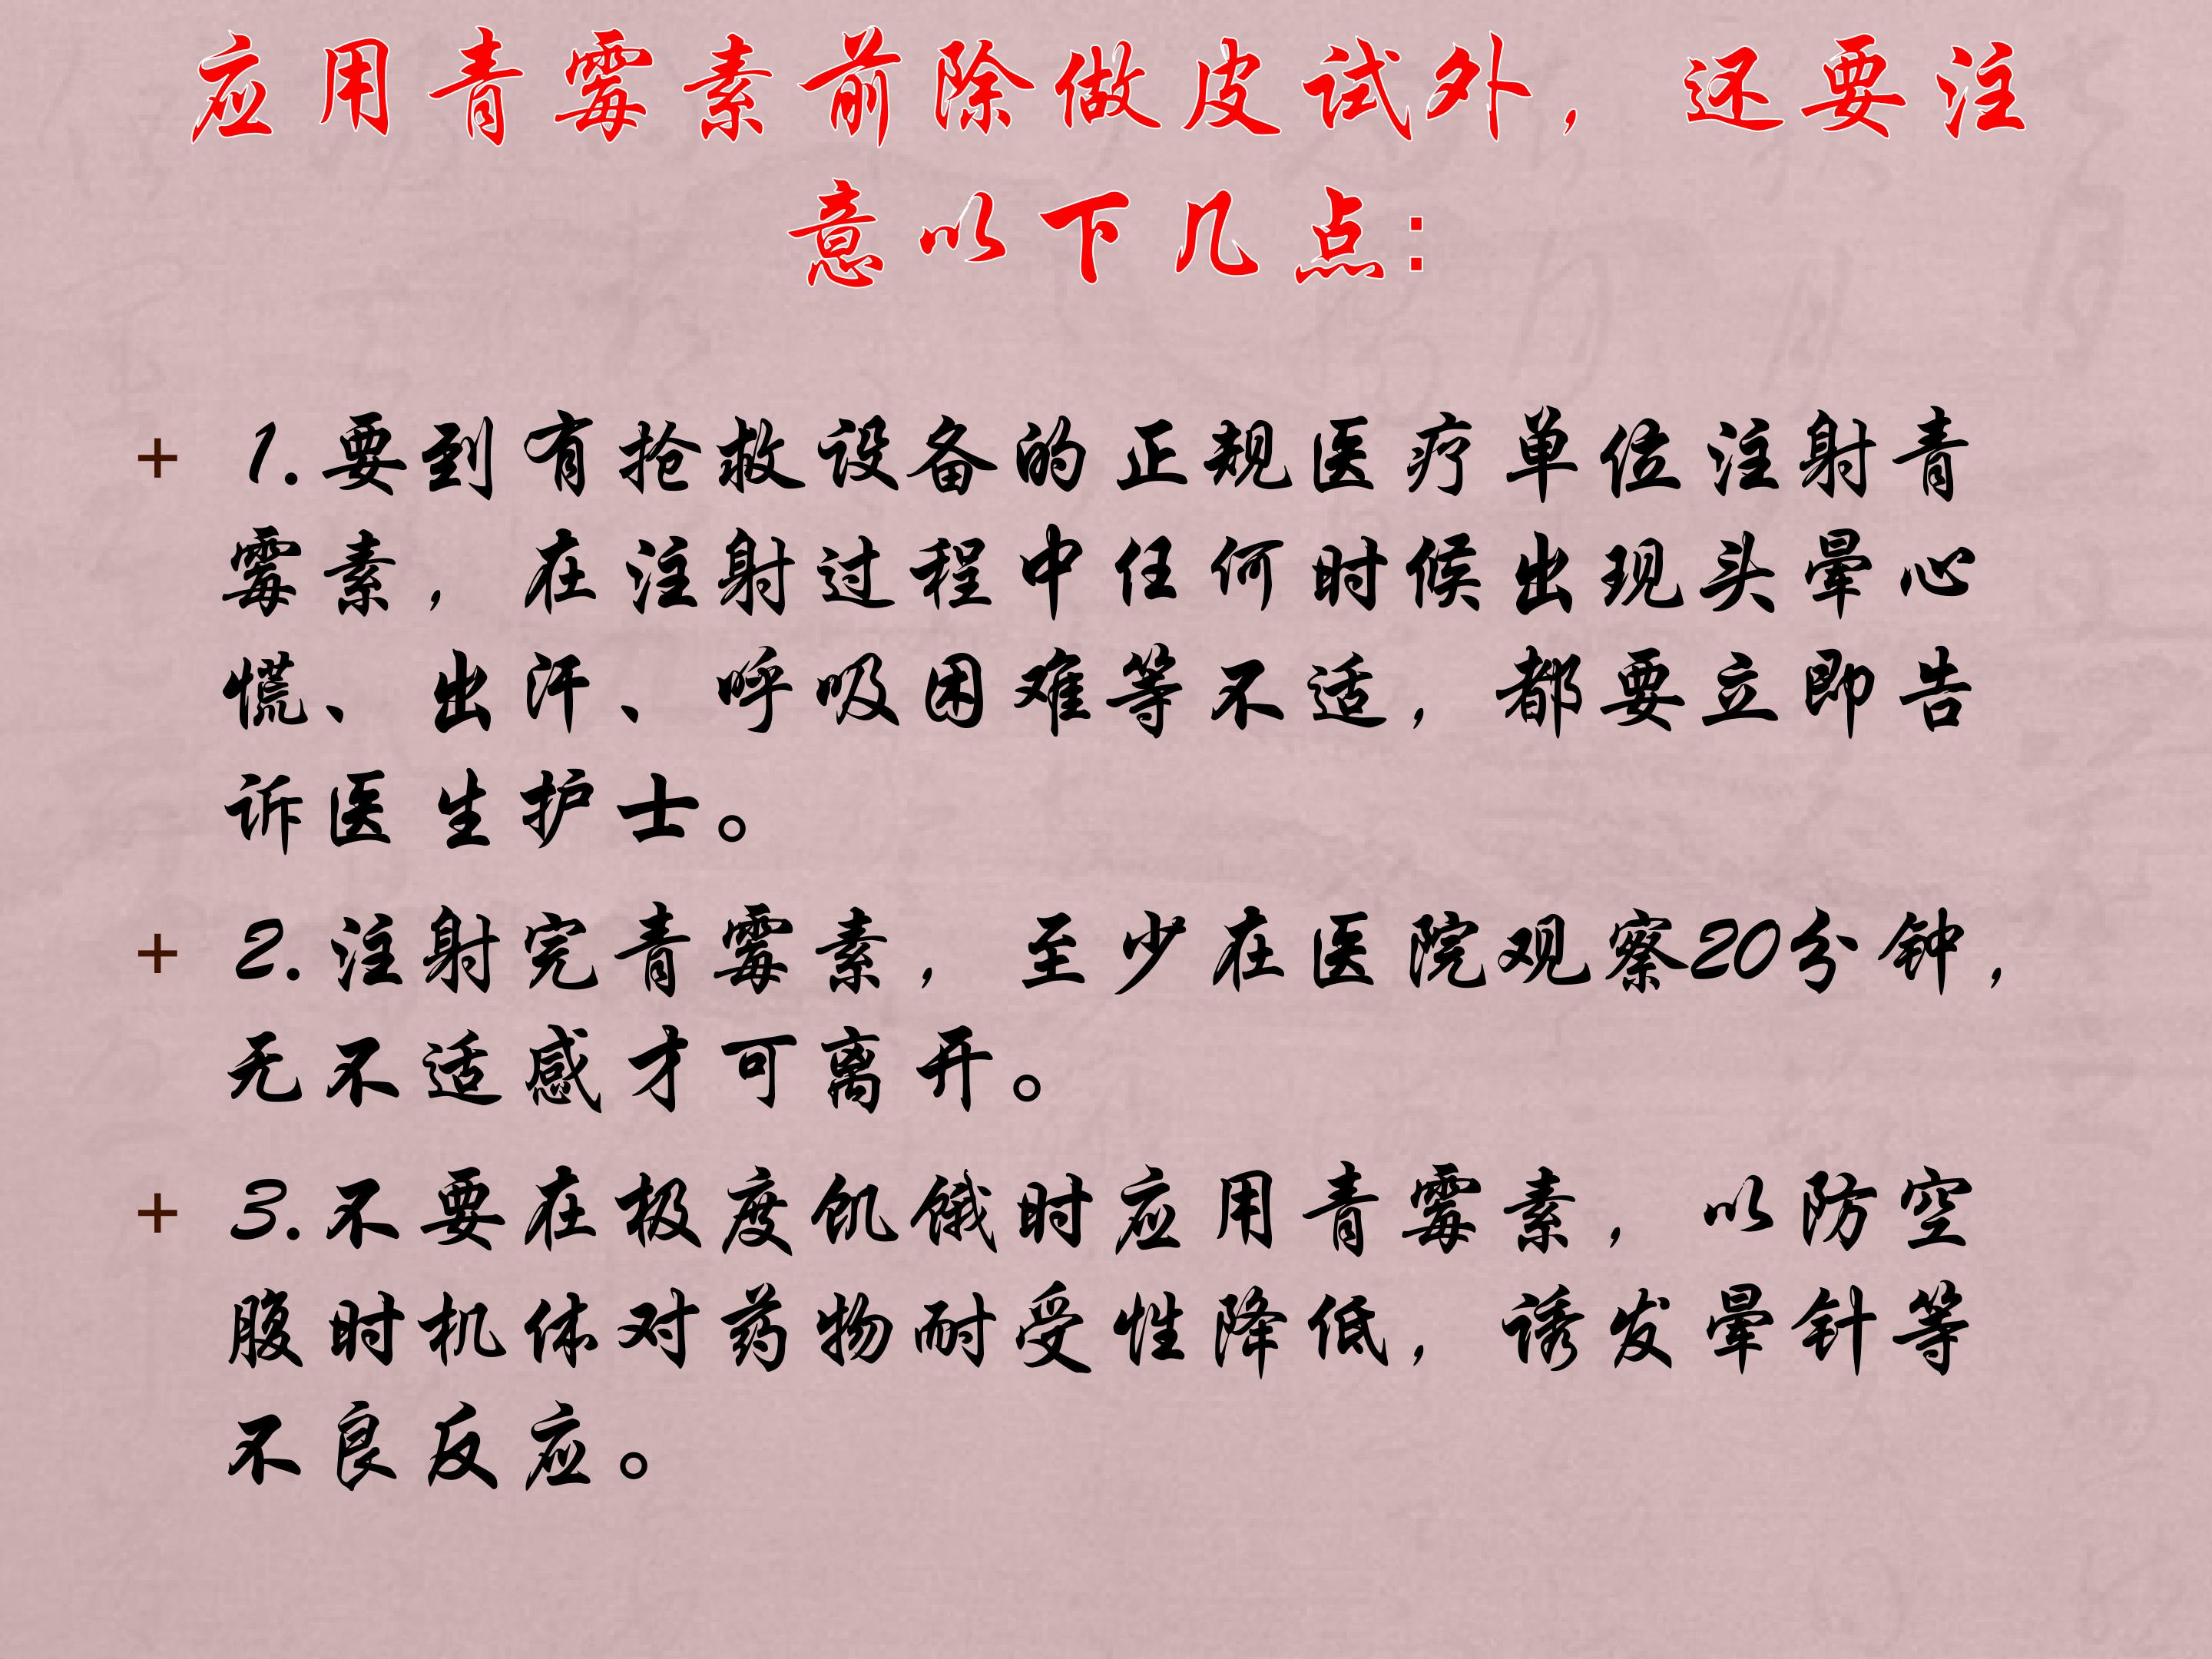 应用青霉素前除做皮试外，还要注
意以下几点：
+ 1.要到有抢救设备的正规医疗单位注射青
霉素，在注射过程中任何时候出现头晕心
慌、出汗、呼吸困难等不适，都要立即告
诉医生护士。
+ 2.注射完青霉素，至少在医院观察20分钟，
无不适感才可离开。
+ 3.不要在极度饥饿时应用青霉素，以防空
腹时机体对药物耐受性降低，诱发晕针等
不良反应。